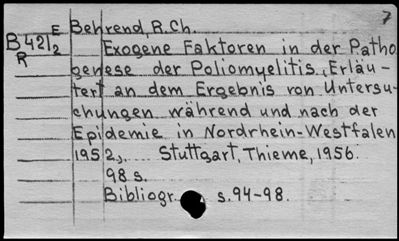 7
E Behrend, R.Ch.
B421/2 Exogene Faktoren in der Patho
R genese der Poliomyelitis, Erläu-
tert an dem Ergebnis von Untersu-
chungen während und nach der
Epidemie in Nordrhein-Westfalen
1952,. Stuttgart, Thieme, 1956.
98 s.
Bibliogr. s. 94-98.